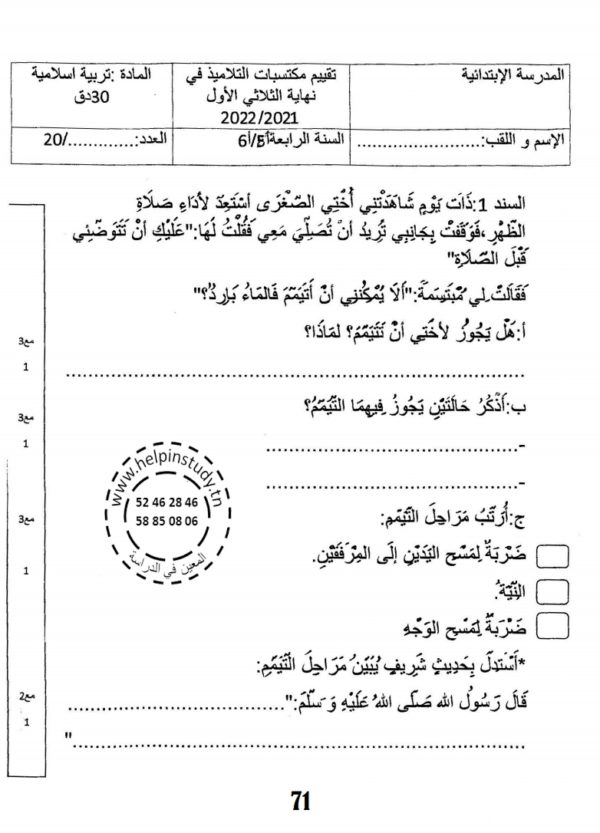 المدرسة الإبتدائية
تقييم مكتسبات التلاميذ في نهاية الثلاثي الأول 2022/2021
المادة :تربية اسلامية 30دق
الإسم و اللقب:......................
السنة الرابعة5أ/6أ
العدد:............./20
السند 1:ذَاتَ يَوْمٍ شَاهَدَتْنِي أُخْتِي الصّغْرَى أسْتَعِدّ لأدَاءِ صَلَاةِ
الظّهْرِ،فَوَقَفَتْ بِجَانِبِي تُرِيدُ أنْ تُصَلِّيَ مَعِي فَقُلْتُ لَهَا:"عَلَيْكِ أنْ تَتَوَضّئِي
قَبْلَ الصّلَاةِ"
فَقَالَتْ لِي مُبْتَسِمَةً:"ألَا يُمْكِنُنِي أنْ أتَيَمّمَ فَالمَاءُ بَارِدٌ؟"
أ:هَلْ يَجُوزُ لأخْتِي أنْ تَتَيَمّمَ؟ لمَاذَا؟
مع3
1
......................................................................
ب:أَذْكُرُ حَالَتَيْنِ يَجُوزُ فِيهِمَا التّيَمّمُ؟
مع3
1
-........................................
-........................................
www.helpinstudy.tn
52 46 28 46
58 85 08 06
المعين في الدراسة
ج:أُرَتّبُ مَرَاحِلَ التّيَمّمِ:
مع3
ضَرْبَةٌ لِمَسْحِ اليَدَيْنِ إلَى المِرْفَقَيْنِ.
1
النّيّةُ.
ضَرْبَةٌ لِمَسْحِ الوَجْهِ
*أسْتَدِلّ بِحَدِيثٍ شَرِيفٍ يُبَيّنُ مَرَاحِلَ التّيَمّمِ:
قَالَ رَسُولُ الله صَلّى اللهُ عَلَيْهِ وَ سَلّمَ:"..............................
مع2
1
......................................................................"
71